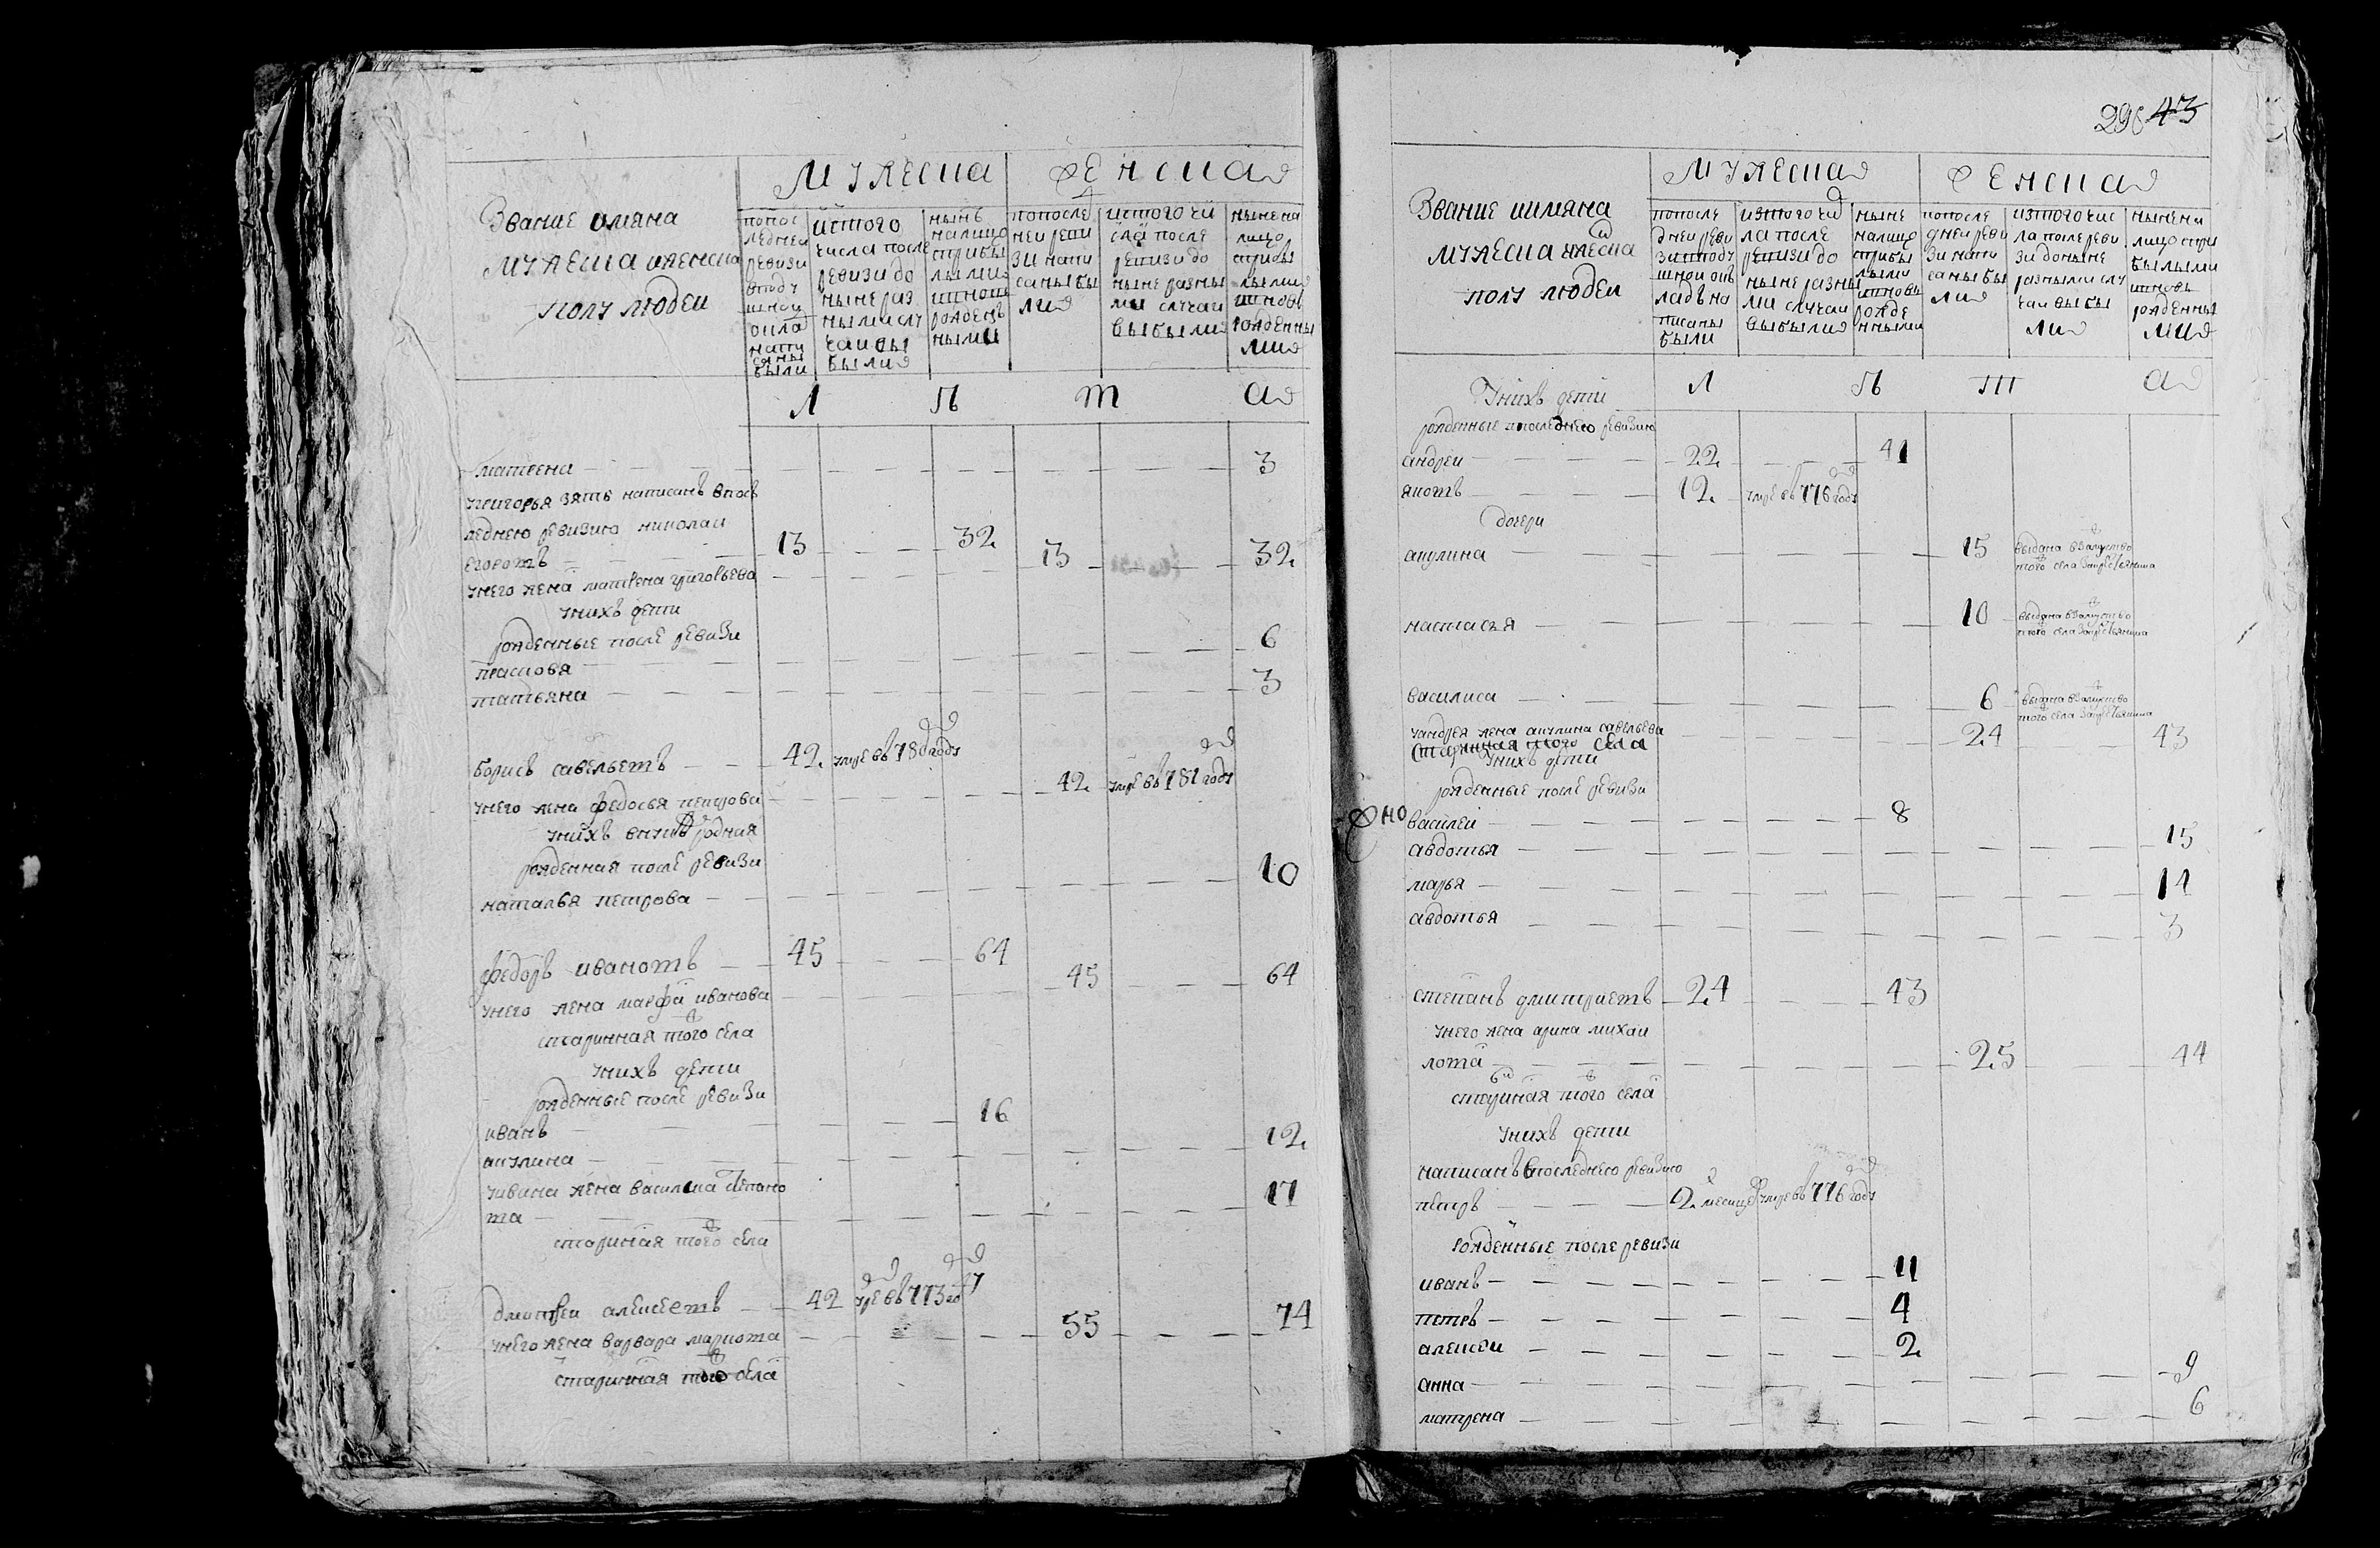 Звание имяна
мужеска иженска
полу людей
мужеска
женская
попос
ледней
ревизи
вподу
шной
окла
напи
саны
были
истого
числа после
ревизи до
ныне раз
ными слу
чаи вы
были
нынѣ
налицо
сприбы
лыми
ивновь
рожденъ
ными
попосле
ней реви
зи напи
саны бы
ли
истого чи
сла после
ревизи до
ныне разны
ми случаи
выбыли
ныне на
лицо
сприбы
лыми
ивновь
рожденны
ми
л ѣ т а
матрена 3
угригорья зять написанъ впос
леднею ревизию николай
егоровъ 13 32
унего жена матрена григорьева 13 32
унихъ дети
рожденные после ревизи
прасковя 6
татьяна 3
борисъ савельевъ 42 умре въ 780 году
унего жена федосья петрова 42 умре въ 781 году
унихъ внука родная
рожденная после ревизи
наталья петрова 10
федоръ ивановъ 45 64
унего жена марфа иванова 45 64
старинная того села
унихъ дети
рожденные после ревизи
иванъ 16
акулина 12
уивана жена василиса степано
ва 17
старинная того села
дмитреи алексеевъ 42 умре въ 773 году
унего жена варвара маркова 55 74
старинная того села
298 43
Звание иимяна
мужеска иженска
полу людей
мужеская
женская
попосле
дней реви
зи вподу
шной окъ
ладъ на
писаны
были
изтого чис
ла после
ревизи до
ныне разны
ми случаи
выбыли
ныне
налицо
сприбы
лыми
ивновь
рожде
нными
попосле
дней реви
зи напи
саны бы
ли
изтого чис
ла после реви
зи доныне
разными слу
чаи выбы
ли
ныне на
лицо спри
былыми
ивновь
рожденны
ми
л ѣ т а
Унихъ дети
рожденные впоследнею ревизию
андреи 22 41
яковъ 12 умре въ 776 году
дочери
акулина 15 выдана взамужство
того села закрестьянина
настасья 10 выдана взамужство
того села закрестьянина
василиса 6 выдана взамужство
того села закрестьянина
уандрея жена акулина савельева 24 43
старинная того села
унихъ дети
рожденные после ревизи
василеи 8
авдотья 15
марья 14
авдотья 3
степанъ дмитриевъ 24 43
унего жена арина михаи
лова 25 44
старинная того села
унихъ дети
написанъ впоследнею ревизию
петръ 2 месяце умре въ 776 году
рожденные после ревизи
иванъ 11
петръ 4
алексеи 2
анна 9
матрена 6